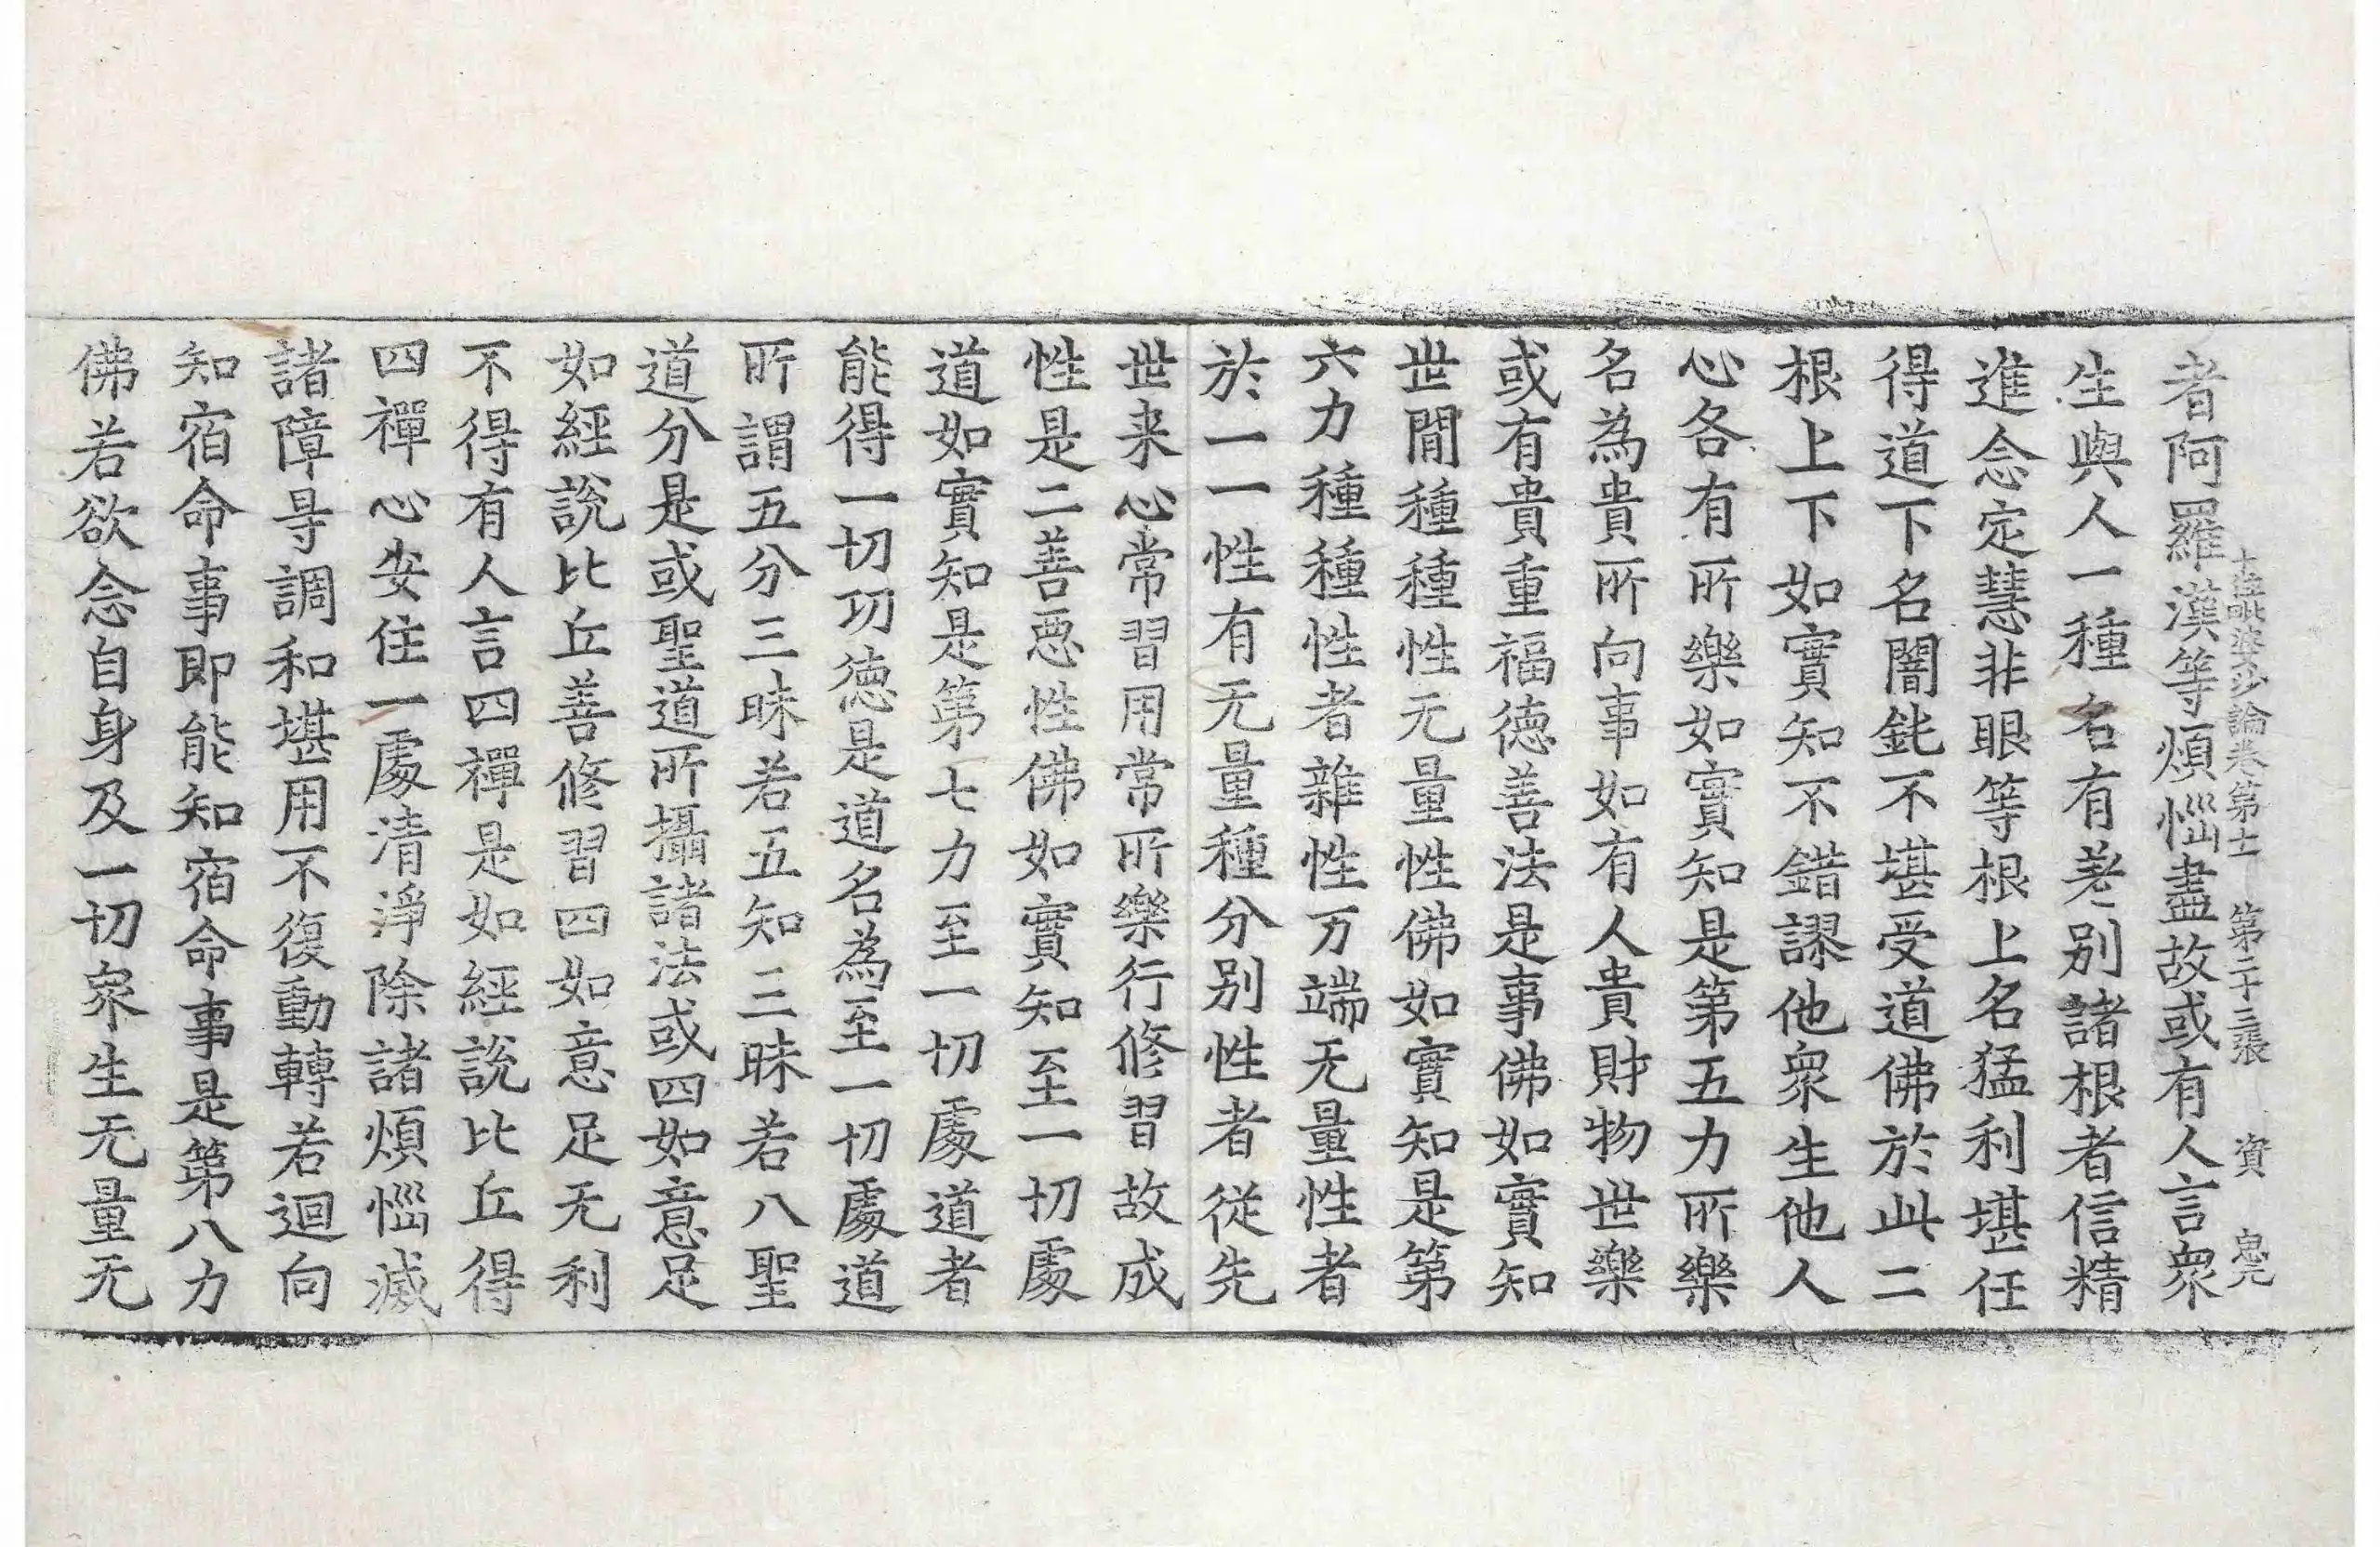 十住毗婆沙論卷第十一 第二十三張 資
者阿羅漢等煩惱盡故或有人言眾
生與人一種名有差別諸根者信精
進念定慧非眼等根上名猛利堪任
得道下名闇鈍不堪受道佛於此二
根上下如實知不錯謬他眾生他人
心各有所樂如實知是第五力所樂
名為貴所向事如有人貴財物世樂
或有貴重福德善法是事佛如實知
世間種種性无量性佛如實知是第
六力種種性者雜性万端无量性者
於一一性有无量種分別性者從先
世来心常習用常所樂行修習故成
性是二善惡性佛如實知至一切處
道如實知是第七力至一切處道者
能得一切功德是道名為至一切處道
所謂五分三昧若五知三昧若八聖
道分是或聖道所攝諸法或四如意足
如經說比丘善修習四如意足无利
不得有人言四禪是如經說比丘得
四禪心安住一處清淨除諸煩惱滅
諸障㝵調和堪用不復動轉若迴向
知宿命事即能知宿命事是第八力
佛若欲念自身及一切眾生无量无